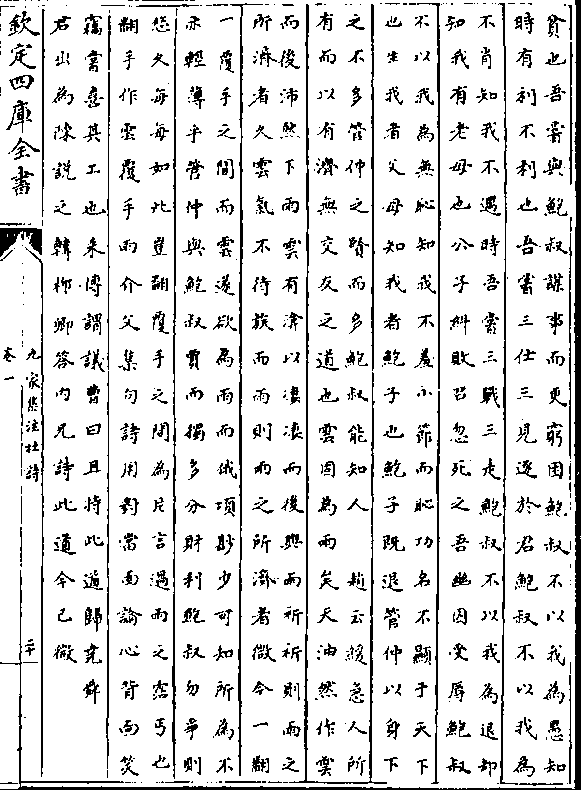 貧也吾嘗與鮑叔謀事而更窮困鮑叔不以我為愚知
時有利不利也吾嘗三仕三見逐於君鮑叔不以我為
不肖知我不遇時吾嘗三戰三走鮑叔不以我為退却
知我有老母也公子糾敗召忽死之吾幽囚受辱鮑叔
不以我為無恥知我不羞小節而恥功名不顯于天下
也生我者父母知我者鮑子也鮑子既退管仲以身下
之不多管仲之賢而多鮑叔能知人 趙云緩急人所
有而以有濟無交友之道也雲固為雨矣天油然作雲
而後沛然下雨雲有渰以凄凄而後興雨祈祈則雨之
所濟者久雲氣不待族而雨則雨之所濟者微今一翻
一覆手之間而雲遂欲為雨而俄項眇少可知所為不
亦輕薄乎管仲與鮑叔賈而獨多分財利鮑叔勿爭則
悠久每每如此豈翻覆手之間為片言遇雨之霑丐也
翻手作雲覆手雨介父集句詩用對當面論心背面笑
竊嘗喜其工也朱博謂議曹曰且持此道歸堯舜
君出為陳說之韓柳卿答內兄詩此道今已微
欽定四庫全書
九家集注杜詩
卷一
二十